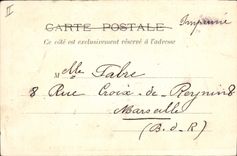 II
CARTE POSTALE
Imprimé
Ce côté est exclusivement réservé à l'adresse
Melle Fabre
8 Rue Croix-de-Reynier 8
Marseille
(B.d.R)